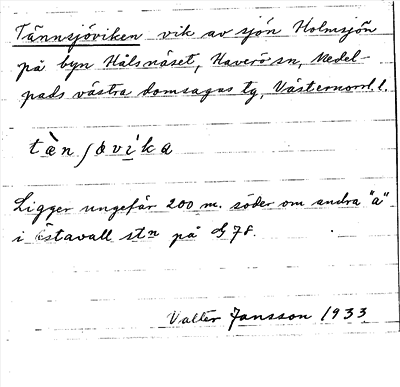 Tännsjöviken vik av sjön Holmsjön
på byn Hålsnäset, Haverö sn, Medel-
pads västra domsagas tg, Västernorrl. l.
tæ̀n ʃøvi̇ka
Ligger ungefär 200 m. söder om andra "a"
i Östavall stn på G 78.
Valter Jansson 1933